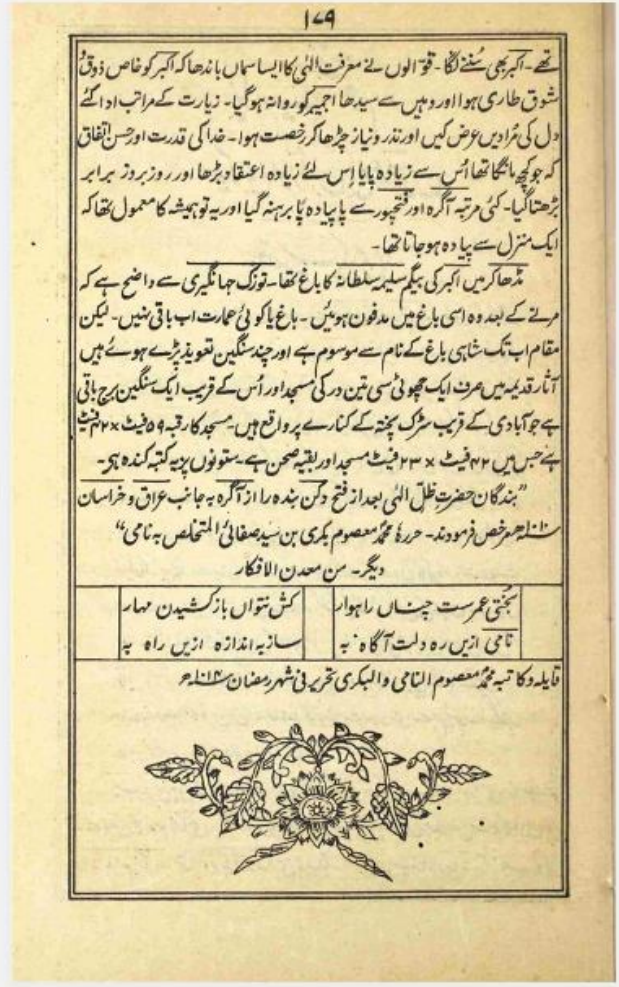 ۱۷۹
تھے۔ اکبر بھی سُننے لگا۔ قوّالوں نے معرفت الٰہی کا ایسا سماں باندھا کہ اکبر کو خاص ذوق و
شوق طاری ہوا اور وہیں سے سیدھا اجمیر کو روانہ ہو گیا۔ زیارت کے مراتب ادا کئے
دل کی مُرادیں عرض کیں اور نذر و نیاز چڑھا کر رخصت ہوا۔ خدا کی قدرت اور حسن اتفاق
کہ جو کچھ مانگا تھا اُس سے زیادہ پایا اِس لئے زیادہ اعتقاد بڑھا اور روز بروز برابر
بڑھتا گیا۔ کئی مرتبہ آگرہ اور فتحپور سے پا پیادہ پا برہنہ گیا اور یہ تو ہمیشہ کا معمول تھا کہ
ایک منزل سے پیادہ ہو جاتا تھا۔
مڈھاکر میں اکبر کی بیگم سلیمہ سلطانہ کا باغ تھا۔ توزک جہانگیری سے واضح ہے کہ
مرنے کے بعد وہ اسی باغ میں مدفون ہوئیں۔ باغ یا کوئی عمارت اب باقی نہیں۔ لیکن
مقام اب تک شاہی باغ کے نام سے موسوم ہے اور چند سنگین تعویذ پڑے ہوئے ہیں
آثار قدیمہ میں صرف ایک چھوٹی سی تین در کی مسجد اور اُس کے قریب ایک سنگین برج باقی
ہے جو آبادی کے قریب سڑک پختہ کے کنارے پر واقع ہیں۔ مسجد کا رقبہ ۵۹ فیٹ × ۴۲ فیٹ
ہے جس میں ۴۲ فیٹ × ۲۳ فیٹ مسجد اور بقیہ صحن ہے۔ ستونوں پر یہ کتبہ کندہ ہے۔
"بندگان حضرتِ ظل الٰہی بعد از فتح دکن بندہ را از آگرہ بہ جانب عراق و خراسان
۱۰۱۰ھ مرخص فرمودند۔ حررہٗ محمد معصوم بکری بن سید صفائی المتخلص بہ نامی"
دیگر۔ من معدن الافکار
بُختی عمرست چناں راہوار | کش نتواں باز کشیدن مہار
نامی ازیں رہ دلت آگاہ بہ | ساز بہ اندازہ ازیں راہ بہ
قایلہ و کاتبہ محمد معصوم النامی و البکری تحریر فی شہر رمضان ۱۰۱۴ھ